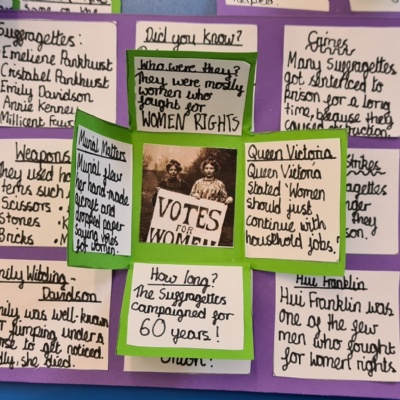 Suffragettes:
Emeliene Pankhurst
Cristabel Pankhurst
Emily Davidson
Annie Kenney
Millicent
Did you know?
Crimes
Many Suffragettes
got sentenced to
prison for a long
time, because they
caused destruction
Who were they?
They were mostly
women who
fought for
WOMEN RIGHTS
Murial Matters
Murial flew
her hand-made
and
dropped paper
saying votes
for women!
VOTES
FOR
WOMEN
Queen Victoria
Queen Victoria
Stated 'Women
should just
continue with
household jobs.'
How long?
The Suffragettes
campaigned for
60 years!
Weapons
They used
items such
Scissors
Stones
Bricks
Strikes
they
Emily Wilding-
Davidson
Emily was well-known
for jumping under a
horse to get noticed.
Sadly, she died.
Union!
Hui Franklin
Hui Franklin was
one of the few
men who fought
for women rights